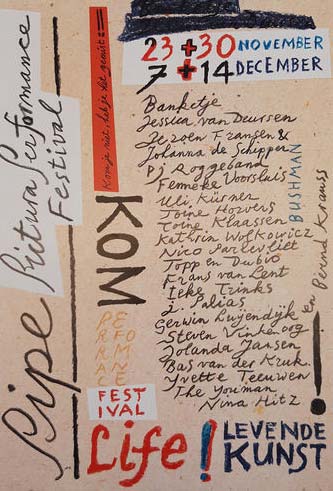 23 + 30 NOVEMBER
7 + 14 DECEMBER
Pipe
Pictura Performance
Festival
Kom je niet, heb je het gemist!
KOM
PERFORMANCE
FESTIVAL
Life!
LEVENDE
KUNST
Banketje
Jessica van Deursen
Jeroen Fransen &
Johanna de Schipper
Pj Roggeband
Femneke Voorsluis
Uli Kürner
Toine Horvers
Toine Klaassen
Kathrin Wolkowicz
Nico Parlevliet
Topp en Dubio
Frans van Lent
Ieke Trinks
J. Palias
Gerwin Luijendijk
Steven Vinkenoog
Yolanda Jansen
Bas van der Kruk
Yvette Teeuwen
The Youman
Nina Hitz
BUSHMAN
en Berndt Krauss